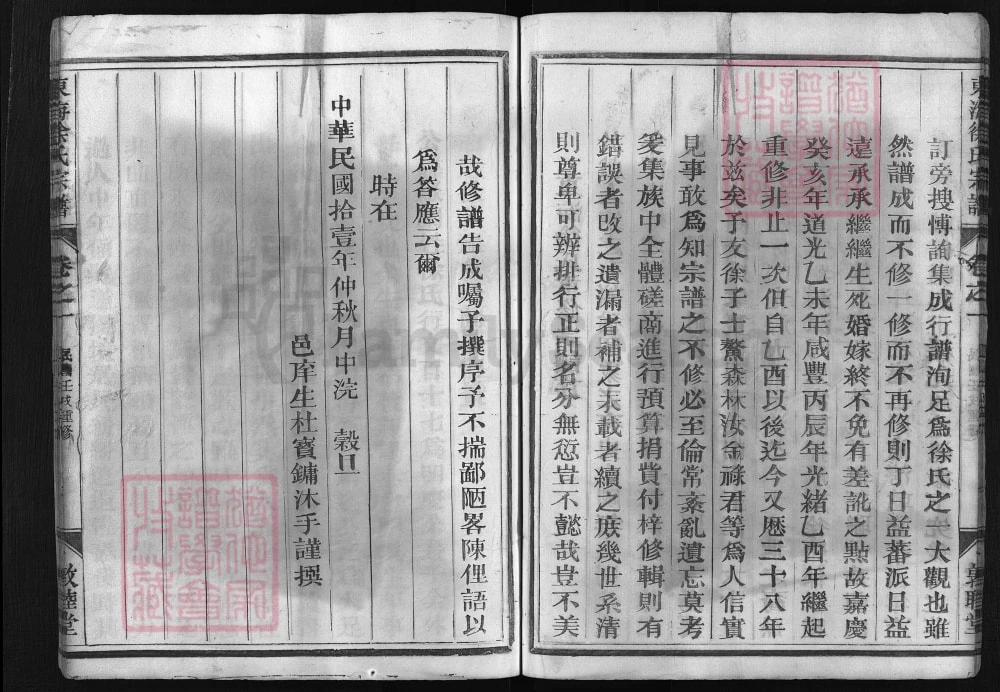 訂旁搜博詢集成行譜洵足爲徐氏之大觀也雖
然譜成而不修一修而不再修則丁日益蕃派日益
遠承承繼繼生死婚嫁終不免有差訛之點故嘉慶
癸亥年道光乙未年咸豐丙辰年光緒乙酉年繼起
重修非止一次但自乙酉以後迄今又歷三十八年
於兹矣予友徐子士鰲森林汝金祿君等爲人信實
見事敢爲知宗譜之不修必至倫常紊亂遺忘莫考
爰集族中全體磋商進行預算捐貲付梓修輯則有
錯誤者改之遺漏者補之未載者續之庶幾世系清
則尊卑可辦排行正則名分無愆豈不懿哉豈不美
敦睦堂
東海徐氏宗譜
卷之一
哉修譜告成囑予撰序予不揣鄙陋畧陳俚語以
爲答應云爾
時在
中華民國拾壹年仲秋月中浣 榖旦
邑庠生杜寶鏞沐手謹撰
東海徐氏宗譜
卷之一
民國壬戌重修
敦睦堂